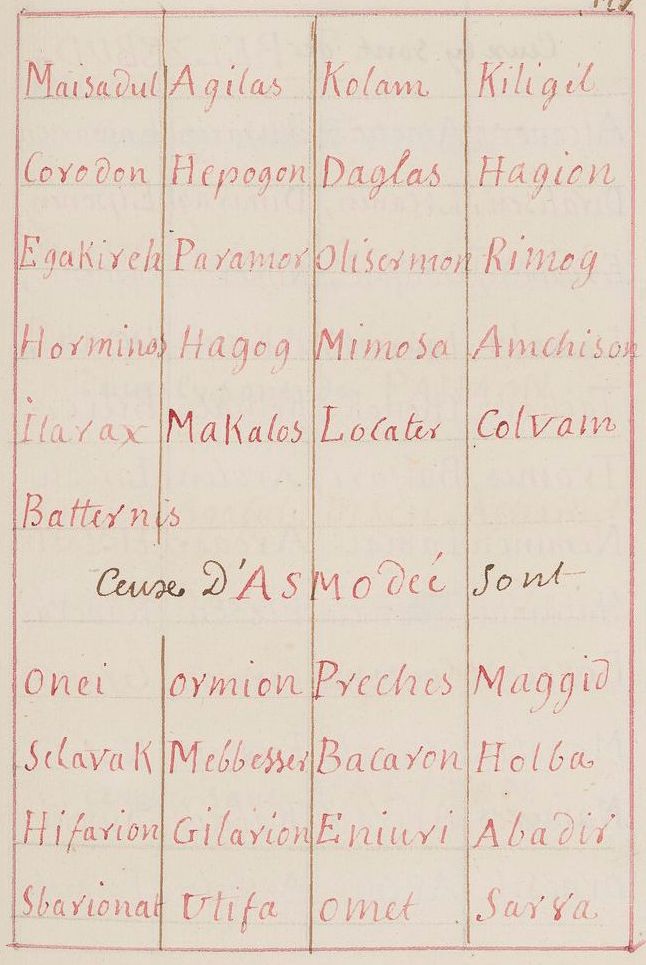 Maisadul Agilas Kolam Kiligil
Corodon Hepogon Daglas Hagion
Egakireh Paramor Olisermon Rimog
Horminos Hagog Mimosa Amchison
Ilarax Makalos Locater Colvam
Batternis
Ceux D'ASModeé sont
Onei ormion Preches Maggid
Sclavak Mebbesser Bacaron Holba
Hifarion Gilarion Eniuri Abadir
Sbarionat Utifa omet Sarra